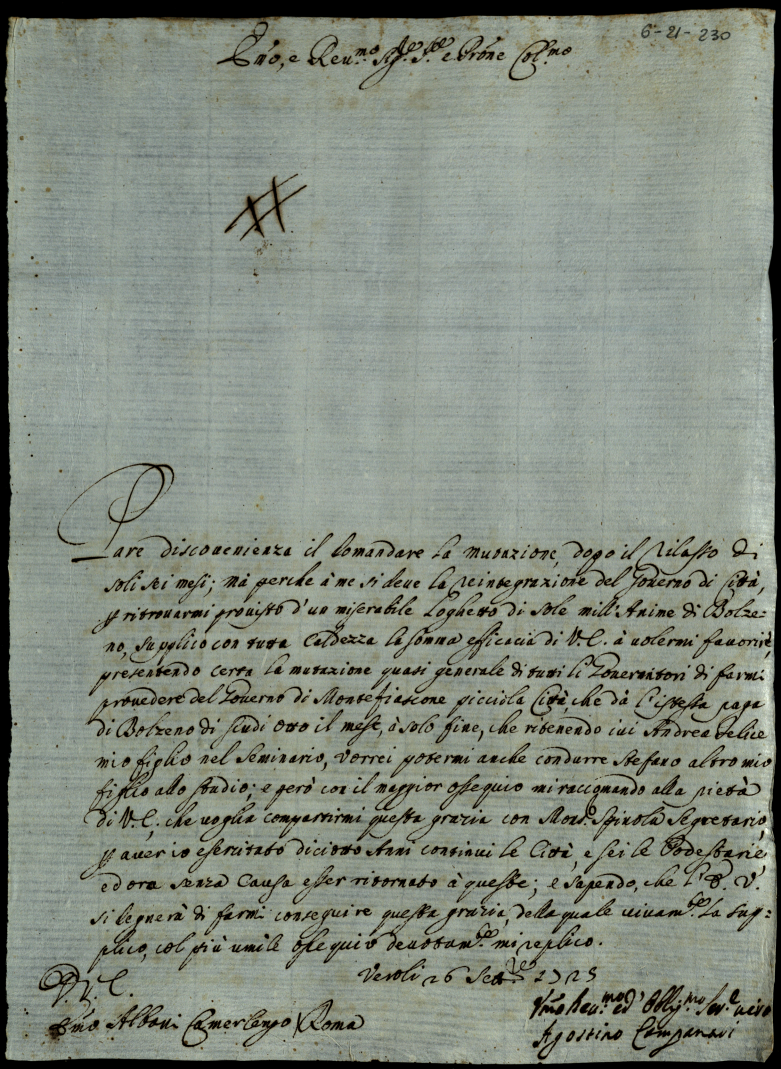 6-21-230
Emo, e Reu.mo Sig.re Sig.re e Prōne Col.mo
Pare disconuenienza il domandare la mutazione, dopo il rilasso di
soli sei mesi; mà perche à me si deue la reintegrazione del Gouerno di Città,
p ritrouarmi prouisto d'un miserabile Loghetto di sole mill'Anime di Bolze=
no, supplico con tutta Caldezza la somma efficacia di V.E. à uolermi fauorire,
presentendo certa la mutazione quasi generale di tutti li Gouernatori di farmi
prouedere del Gouerno di Montefiascone picciola Città, che dà l'istessa paga
di Bolzeno di scudi otto il mese, à solo fine, che ritenendo iui Andrea Felice
mio figlio nel Seminario, vorrei potermi anche condurre Stefano altro mio
figlio allo studio; e però con il maggior ossequio mi raccomando alla pietà
di V.E. che uoglia compartirmi questa grazia con Mons. Spinola Segretario,
p auer io esercitato diciotto Anni continui le Città, e sei le Podestarie,
ed ora senza Causa esser ritornato à queste; e sapendo, che l'E. V.
si degnerà di farmi conseguire questa grazia, della quale uiuam.te la sup=
plico, col più umile ossequio deuotam.te mi replico.
D.V.E. Veroli 26 Sett.re 1725
Emo Albani Camerlengo Roma
Vmo Deu.mo ed Oblig.mo Ser.e uero
Agostino Campanari